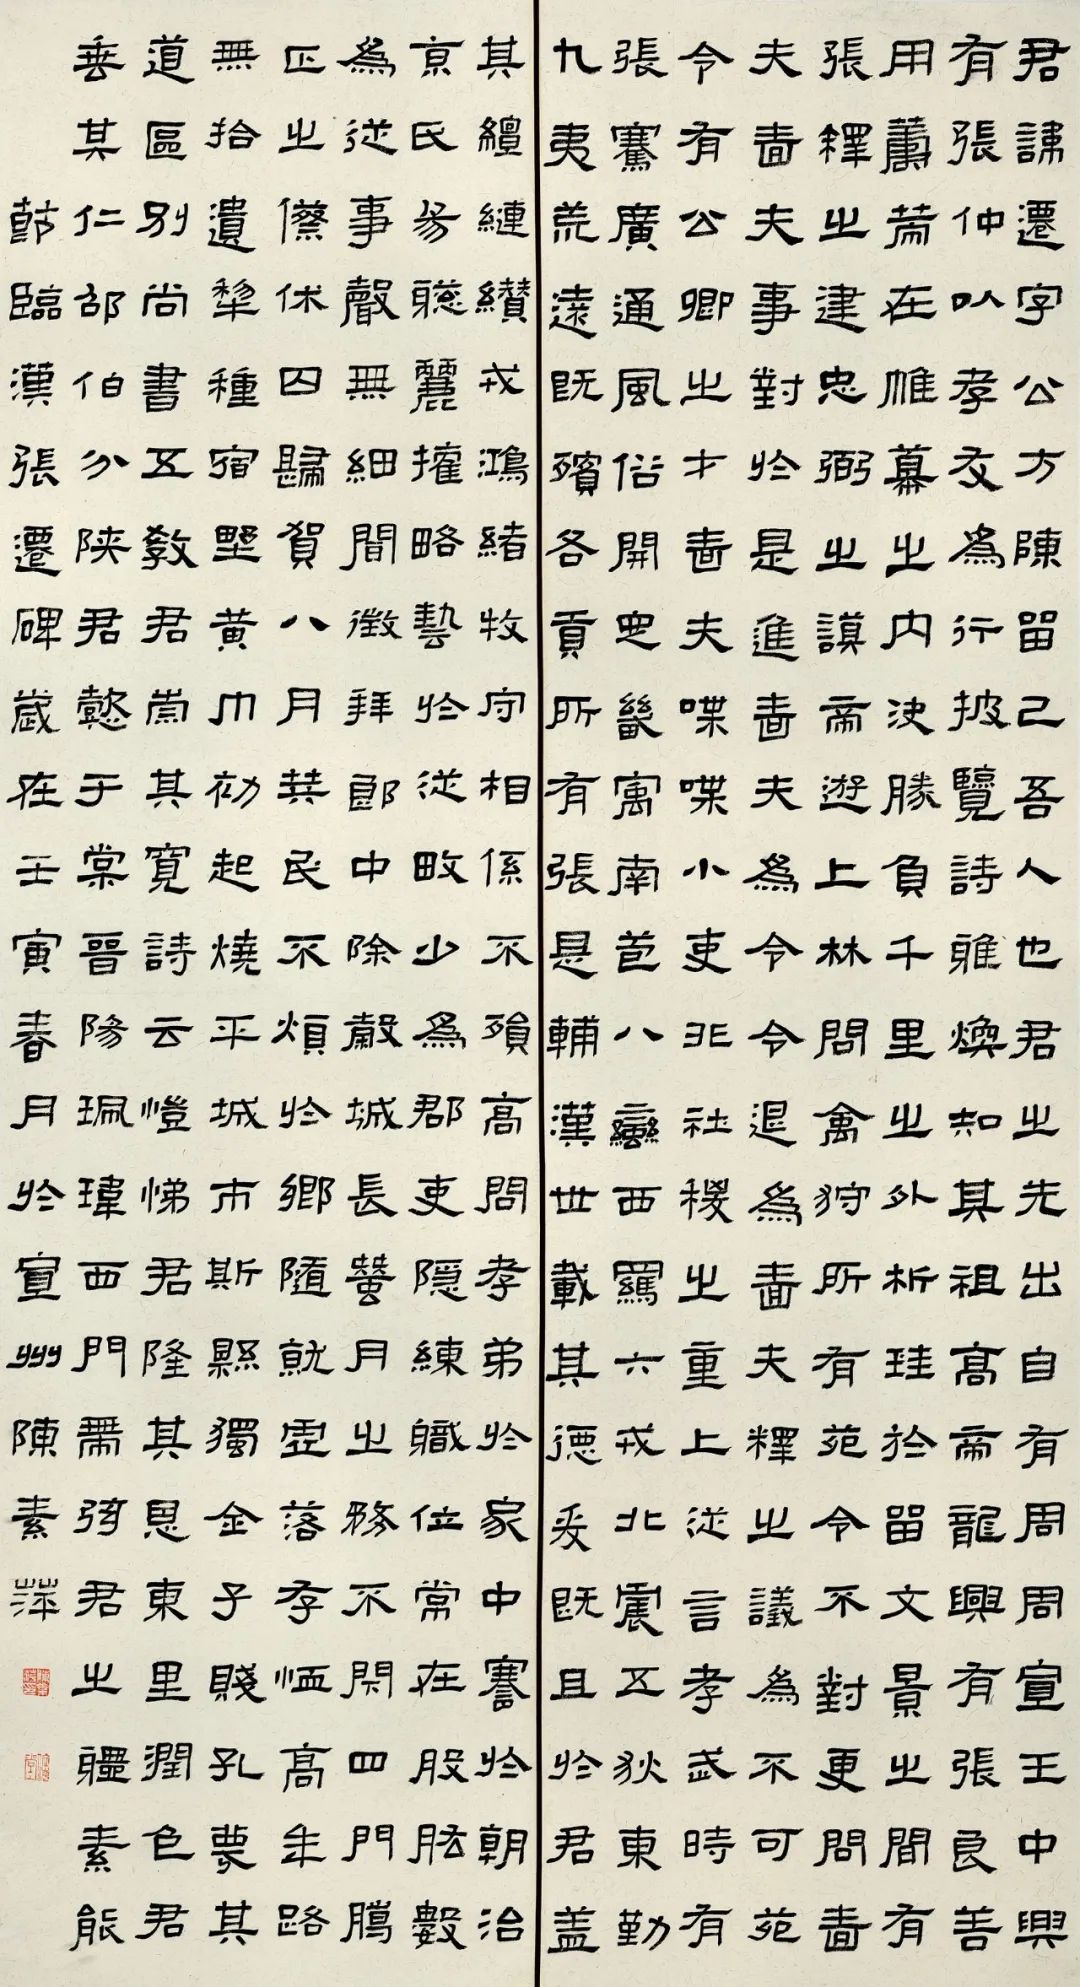 君諱遷字公方陳留己吾人也君之先出自有周周宣王中興
有張仲以孝友為行披覽詩雅煥知其祖高帝龍興有張良善
用蕭荷在帷幕之內決勝負千里之外析珪於留文景之間有
張釋之建忠弼之謨帝遊上林問禽狩所有苑令不對更問嗇
夫嗇夫事對於是進嗇夫為令令退為嗇夫釋之議為不可苑
令有公卿之才嗇夫喋喋小吏非社稷之重上從言孝武時有
張騫廣通風俗開定畿寓南苞八蠻西羈六戎北震五狄東勤
九夷荒遠既殯各貢所有張是輔漢世載其德爰既且於君蓋
其繵縺纘戎鴻緒牧守相係不殞高問孝弟於家中謇於朝治
京氏易聰麗權略藝於從畋少為郡吏隱練職位常在股肱數
為從事聲無細聞徵拜郎中除穀城長蠶月之務不閉四門騰
正之僚休囚歸賀八月筭民不煩於鄉隨就虛落存恤高年路
無拾遺犁種宿野黃巾初起燒平城市斯縣獨全子賤孔蔑其
道區別尚書五教君崇其寬詩云愷悌君隆其恩東里潤色君
垂其仁邵伯分陝君懿于棠晉陽珮瑋西門帶弦君之體素能
節臨漢張遷碑歲在壬寅春月於宣州陳素萍